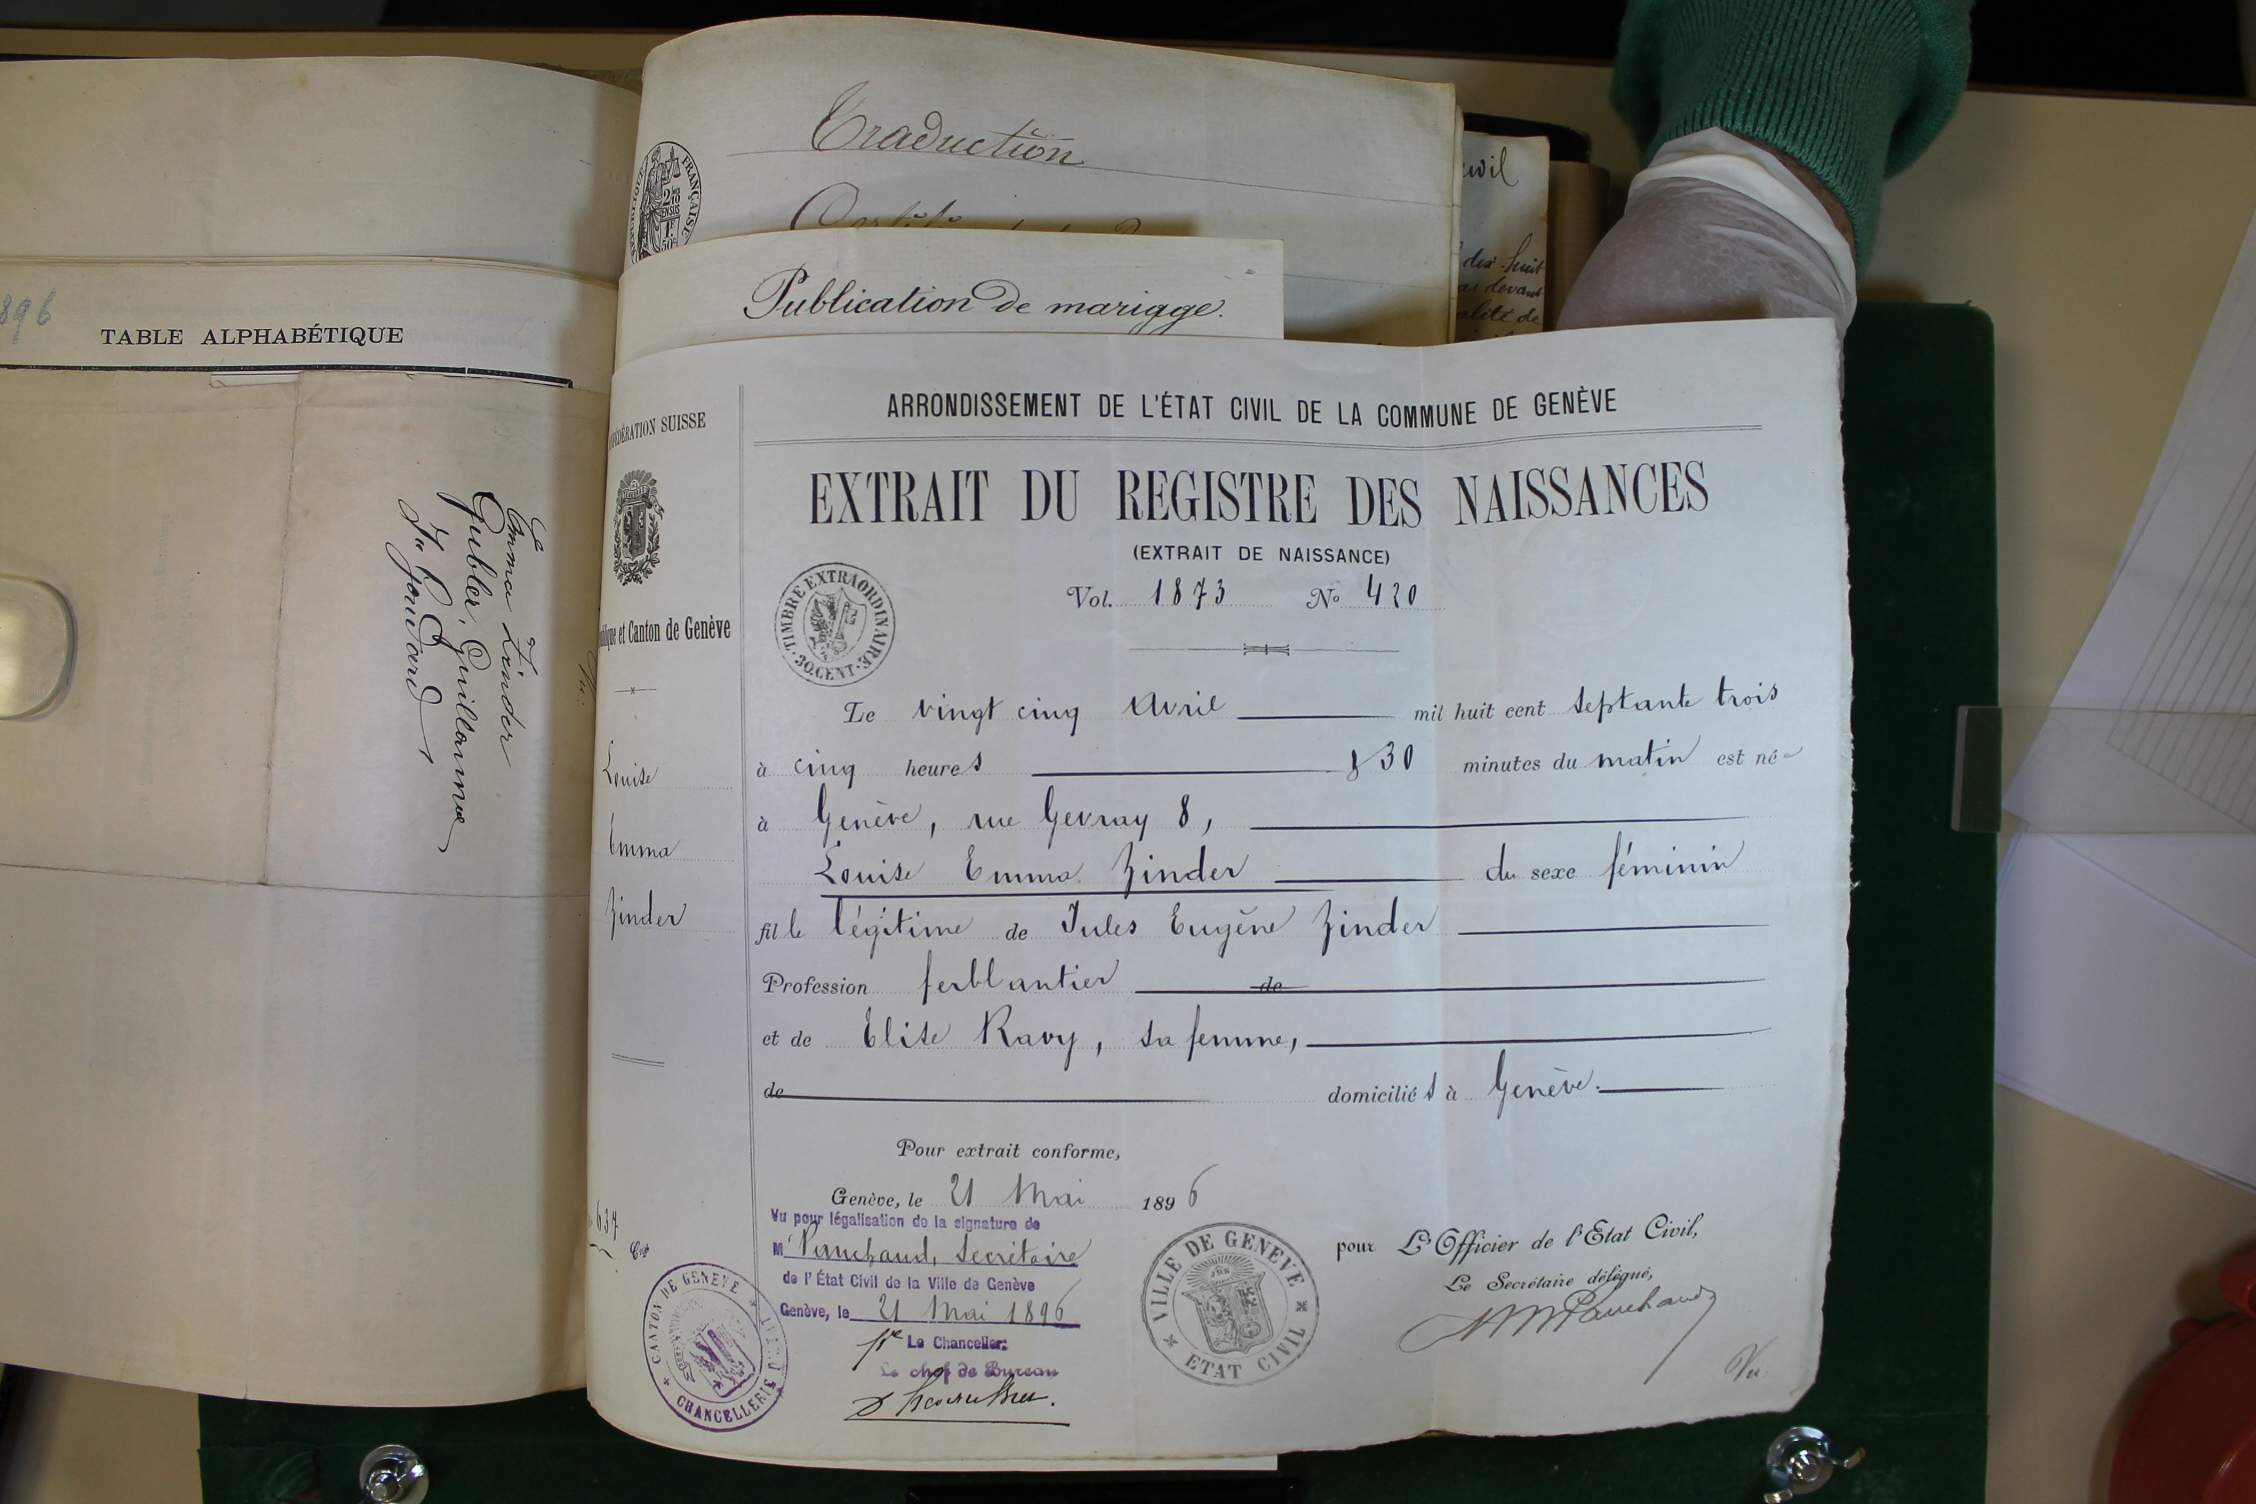 896
TABLE ALPHABÉTIQUE
Emma Zinder
Gubler, Guillaume
Traduction
RÉPUBLIQUE FRANÇAISE
civil
dix-huit
devant
Publication de mariage.
CONFÉDÉRATION SUISSE
République et Canton de Genève
Louise
Emma
Zinder
637
ARRONDISSEMENT DE L'ÉTAT CIVIL DE LA COMMUNE DE GENÈVE
EXTRAIT DU REGISTRE DES NAISSANCES
(EXTRAIT DE NAISSANCE)
Vol. 1873 No 420
TIMBRE EXTRAORDINAIRE 30 CENT
Le vingt cinq Avril mil huit cent septante trois
à cinq heures & 30 minutes du matin est née
à Genève, rue Gevray 8,
Louise Emma Zinder du sexe féminin
fille légitime de Jules Eugène Zinder
Profession ferblantier de
et de Elise Ravy, sa femme,
de domiciliés à Genève.
Pour extrait conforme,
Genève, le 21 Mai 1896
Vu pour légalisation de la signature de
M Pauchaud, Secrétaire
de l'État Civil de la Ville de Genève
Genève, le 21 Mai 1896
pr Le Chancelier:
Le chef de Bureau
CANTON DE GENEVE CHANCELLERIE
VILLE DE GENEVE ETAT CIVIL
pour L'Officier de l'Etat Civil,
Le Secrétaire délégué,
Pauchaud
Vu